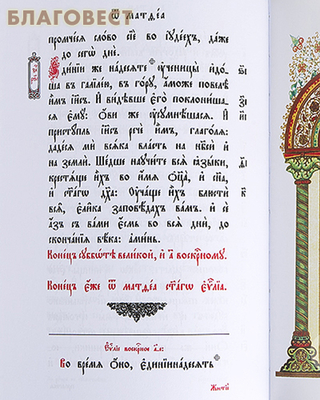 БЛАГОВЕСТ
Ѿ матѳеа
промчесѧ слово сїѐ во іꙋдеехъ, даже
до сегѡ̀ днѐ.
Єди́нїи же на́десѧте ᲂу҆ченицы̀ и҆до́-
ша въ галїле́ю, въ го́рꙋ, а҆́може повелѣ̀
и҆̀мъ і҆и҃съ. И҆ ви́дѣвше є҆го̀ поклони́ша-
сѧ є҆мꙋ̀: Ѻ҆́ви же ᲂу҆сꙋмнѣ́шасѧ. И҆
пристꙋ́пль і҆и҃съ речѐ и҆̀мъ, глаго́лѧ:
даде́сѧ мѝ всѧ́ка вла́сть на нб҃сѝ и҆
на землѝ. Ше́дше научи́те всѧ̑ ꙗ҆зы́ки,
крестѧ́ще и҆̀хъ во и҆́мѧ ѻ҆ц҃а̀, и҆ сн҃а,
и҆ ст҃а́гѡ дх҃а: ᲂу҆ча́ще и҆̀хъ блюстѝ
всѧ̑, є҆ли̑ка заповѣ́дахъ ва́мъ. и҆ сѐ
а҆́зъ съ ва́ми є҆́смь во всѧ̑ дни̑, до
сконча́нїѧ вѣ́ка: а҆ми́нь.
Коне́цъ сꙋббѡ́тѣ вели́кой, и҆ а҃ воскрⷭ҇номꙋ.
Коне́цъ є҆́же ѿ матѳе́а ст҃а́гѡ є҆ѵⷢ҇лїа.
Є҆ѵⷢ҇лїе воскрⷭ҇ное а҃.е:
Во вре́мѧ ѻ҆́но, є҆ди́нїинадесѧть